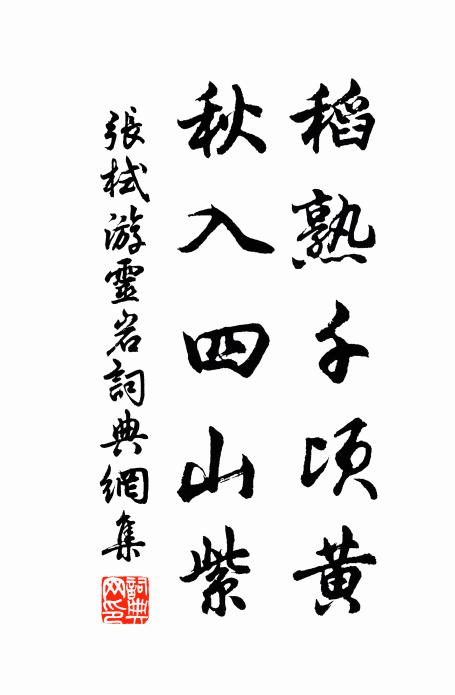 稻熟千頃黄
秋入四山紫
張栻游靈岩詞典網集
詞典网印